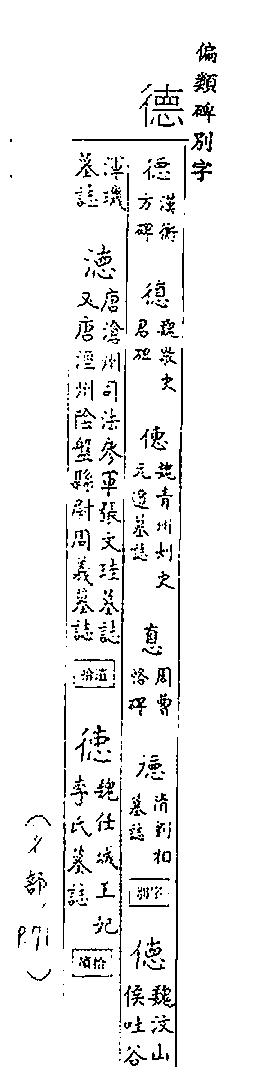 偏類碑別字
德
德 漢衡
方碑
德 魏敬史
君碑
德 魏青州刺史
元遥墓誌
惪 周曹
恪碑
德 清刺相
墓誌
別字
德 魏汶山
侯吐谷
渾璣
墓誌
德 唐滄州司法參軍張文珪墓誌
又唐涇州陰盤縣尉周義墓誌
拾遺
德 魏任城王妃
李氏墓誌
(彳部,
P.71)